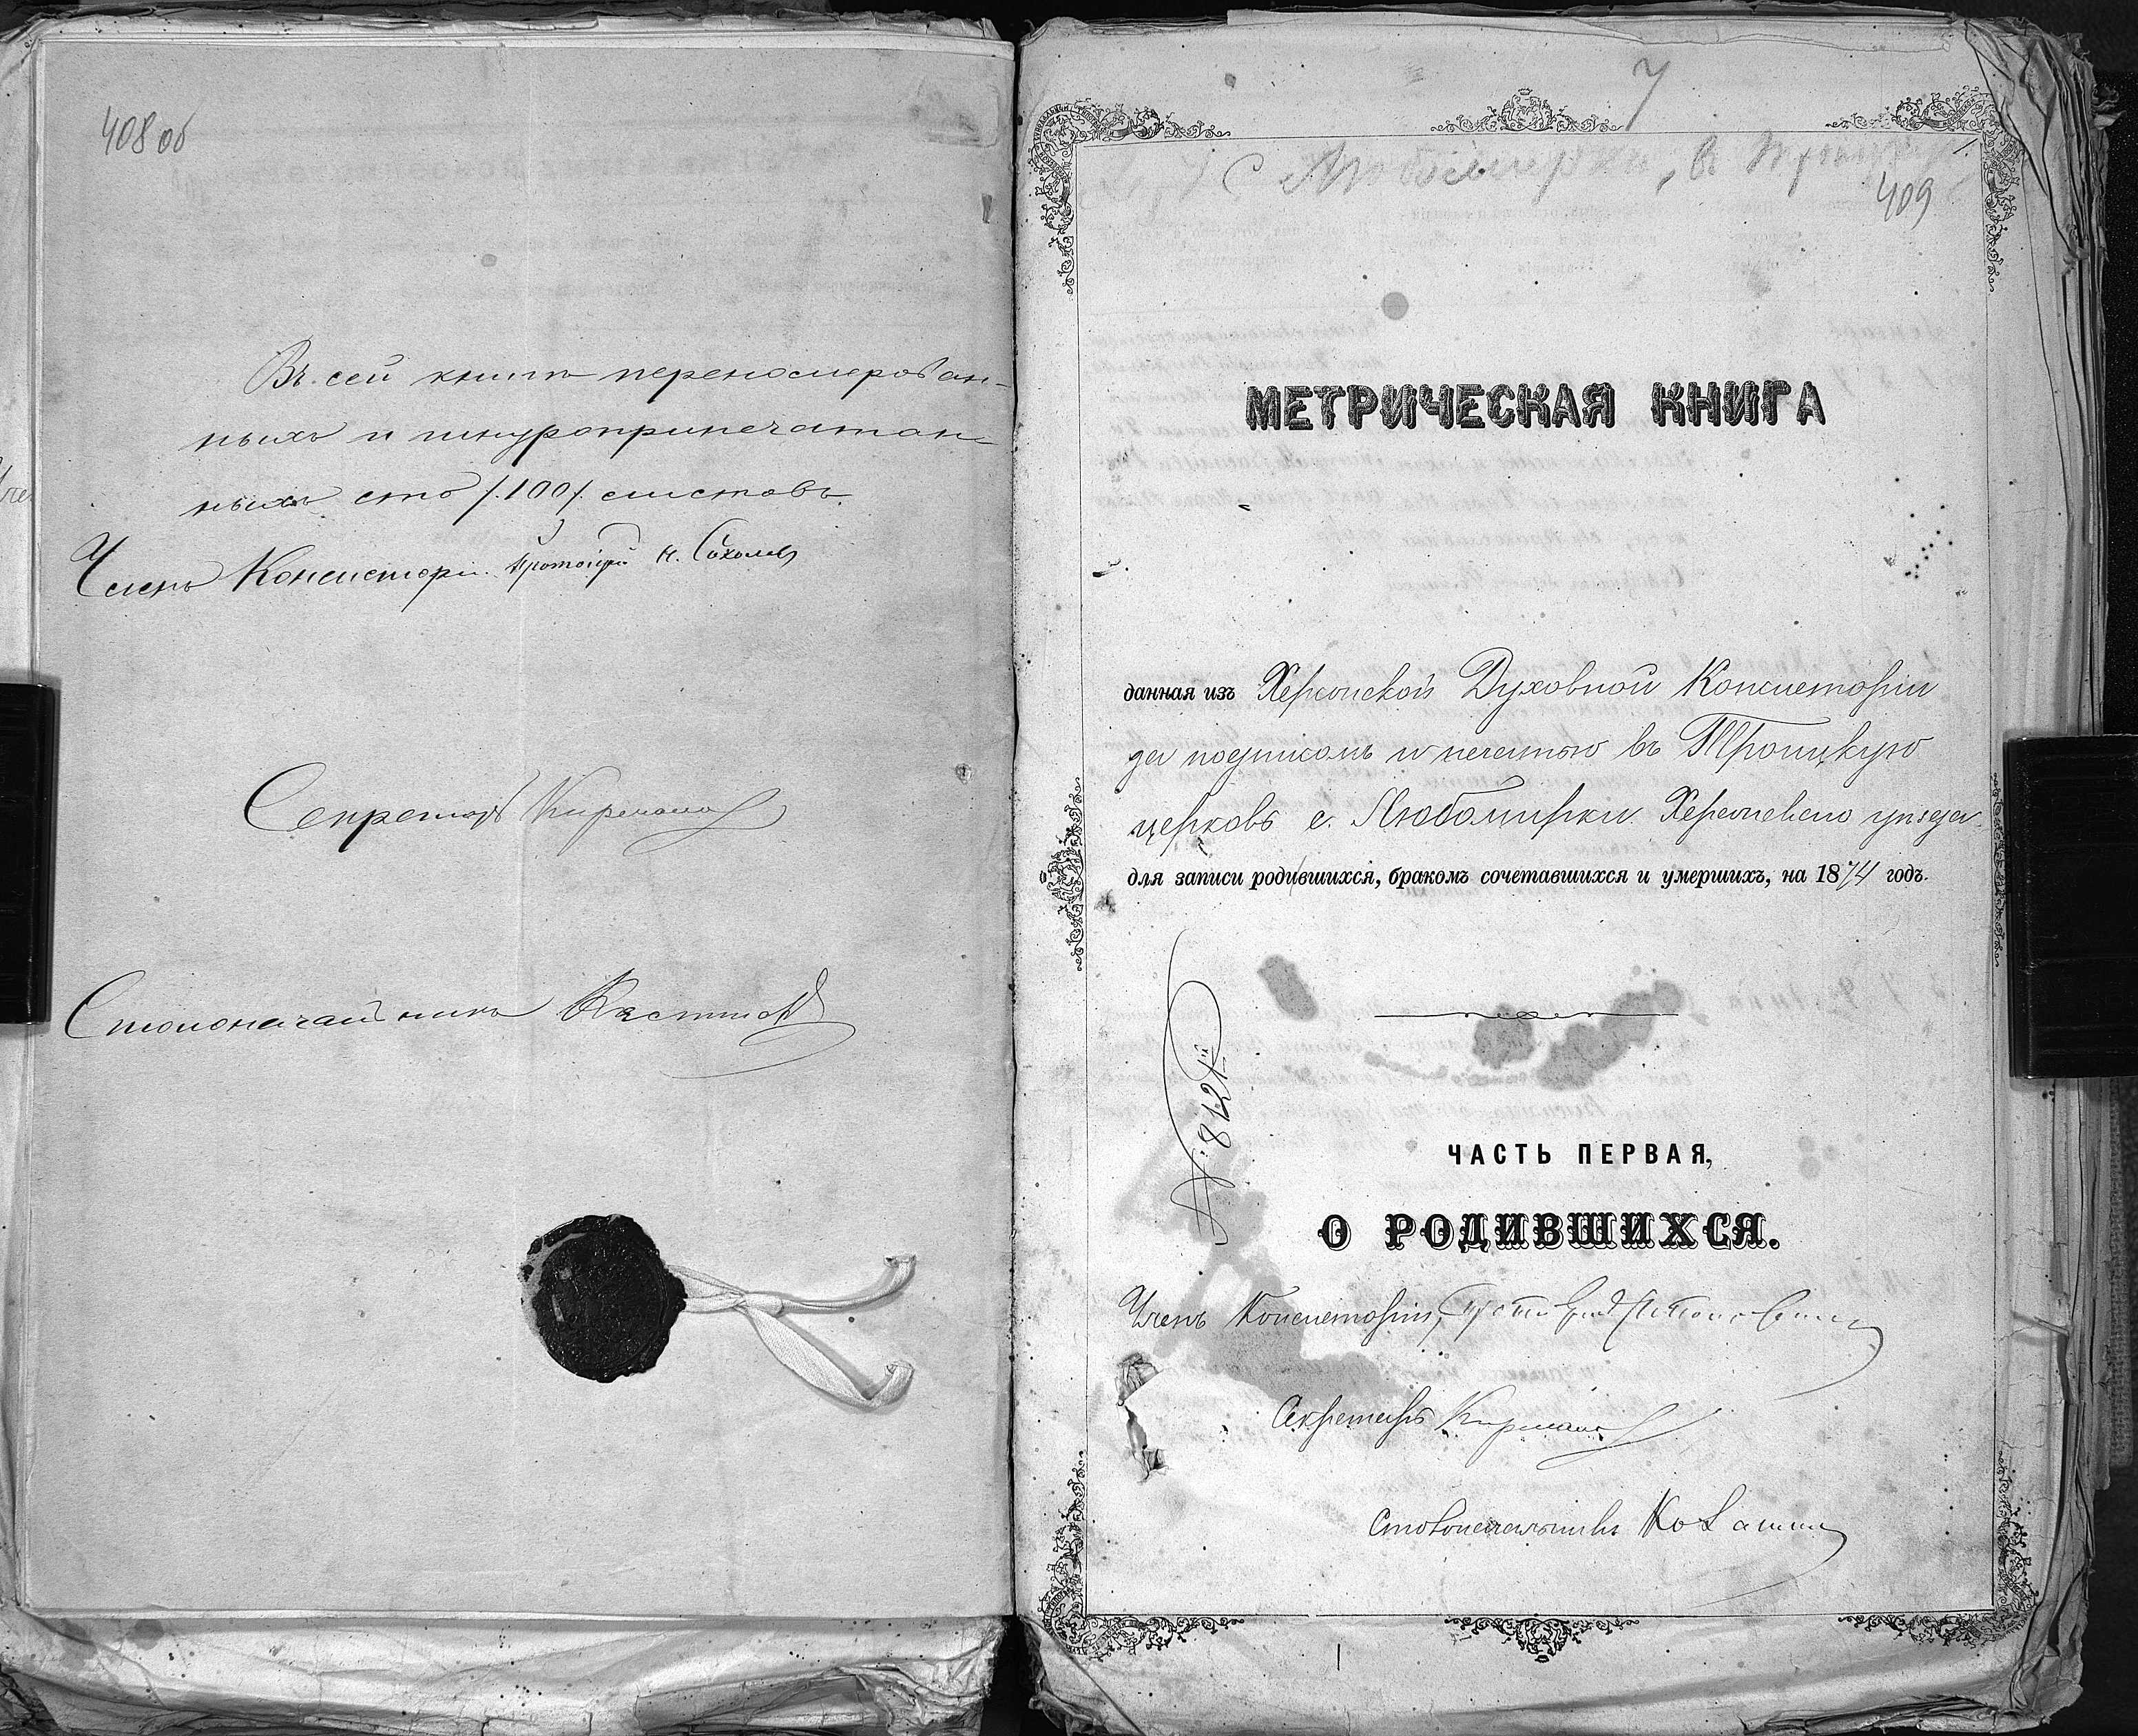 408 об
Въ сей книгѣ переномерован-
ныхъ и шнуроприпечатан-
ныхъ сто /.100/. листовъ.
Членъ Консисторіи Протоіерей Н. Соколовъ
Секретарь
Столоначальникъ
7
с Любомирки, в
409
МЕТРИЧЕСКАЯ КНИГА
данная изъ Херсонской Духовной Консисторіи
за подписомъ и печатью въ Троицкую
церковь с. Любомирки Херсонскаго уѣзда
для записи родившихся, бракомъ сочетавшихся и умершихъ, на 1874 годъ.
№ 8121
ЧАСТЬ ПЕРВАЯ,
О РОДИВШИХСЯ.
Членъ Консисторіи,
Секретарь
Столоначальникъ